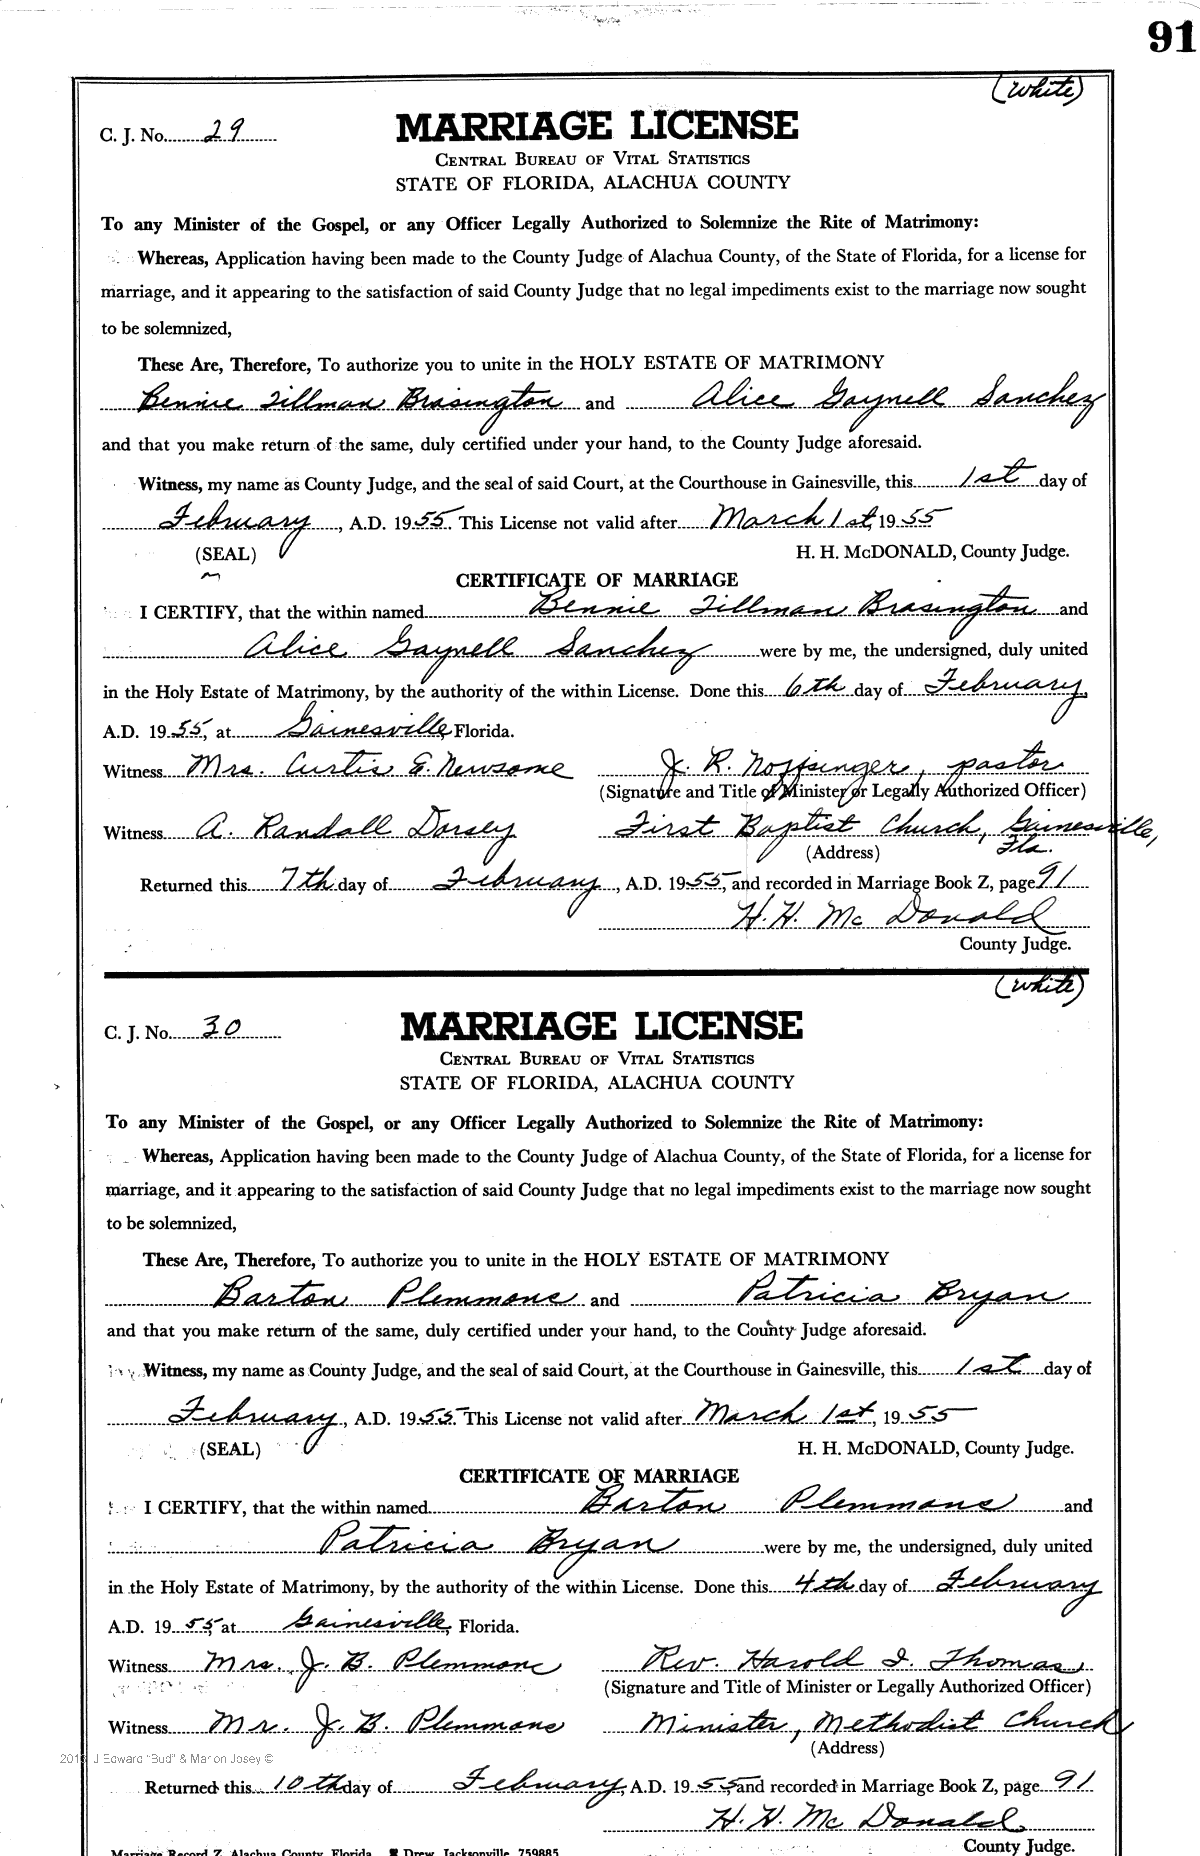 91
(White)
C. J. No. 29
MARRIAGE LICENSE
CENTRAL BUREAU OF VITAL STATISTICS
STATE OF FLORIDA, ALACHUA COUNTY
To any Minister of the Gospel, or any Officer Legally Authorized to Solemnize the Rite of Matrimony:
Whereas, Application having been made to the County Judge of Alachua County, of the State of Florida, for a license for
marriage, and it appearing to the satisfaction of said County Judge that no legal impediments exist to the marriage now sought
to be solemnized,
These Are, Therefore, To authorize you to unite in the HOLY ESTATE OF MATRIMONY
Bennie Tillman Brasington and Alice Gaynell Sanchez
and that you make return of the same, duly certified under your hand, to the County Judge aforesaid.
Witness, my name as County Judge, and the seal of said Court, at the Courthouse in Gainesville, this 1st day of
February, A.D. 1955. This License not valid after March 1st, 1955
(SEAL) H. H. McDONALD, County Judge.
CERTIFICATE OF MARRIAGE
I CERTIFY, that the within named Bennie Tillman Brasington and
Alice Gaynell Sanchez were by me, the undersigned, duly united
in the Holy Estate of Matrimony, by the authority of the within License. Done this 6th day of February,
A.D. 1955, at Gainesville, Florida.
Witness Mrs. Curtis E. Newsome J. R. Noffsinger, pastor
(Signature and Title of Minister or Legally Authorized Officer)
Witness A. Randall Dorsey First Baptist Church, Gainesville,
(Address) Fla.
Returned this 7th day of February, A.D. 1955, and recorded in Marriage Book Z, page 91
H. H. McDonald
County Judge.
(White)
C. J. No. 30
MARRIAGE LICENSE
CENTRAL BUREAU OF VITAL STATISTICS
STATE OF FLORIDA, ALACHUA COUNTY
To any Minister of the Gospel, or any Officer Legally Authorized to Solemnize the Rite of Matrimony:
Whereas, Application having been made to the County Judge of Alachua County, of the State of Florida, for a license for
marriage, and it appearing to the satisfaction of said County Judge that no legal impediments exist to the marriage now sought
to be solemnized,
These Are, Therefore, To authorize you to unite in the HOLY ESTATE OF MATRIMONY
Barton Plemmons and Patricia Bryan
and that you make return of the same, duly certified under your hand, to the County Judge aforesaid.
Witness, my name as County Judge, and the seal of said Court, at the Courthouse in Gainesville, this 1st day of
February, A.D. 1955. This License not valid after March 1st, 1955
(SEAL) H. H. McDONALD, County Judge.
CERTIFICATE OF MARRIAGE
I CERTIFY, that the within named Barton Plemmons and
Patricia Bryan were by me, the undersigned, duly united
in the Holy Estate of Matrimony, by the authority of the within License. Done this 4th day of February
A.D. 1955, at Gainesville, Florida.
Witness Mrs. J. B. Plemmons Rev. Harold I. Thomas
(Signature and Title of Minister or Legally Authorized Officer)
Witness Mr. J. B. Plemmons Minister, Methodist Church
(Address)
J Edward "Bud" & Marion Josey ©
Returned this 10th day of February, A.D. 1955, and recorded in Marriage Book Z, page 91
H. H. McDonald
County Judge.
Marriage Record Z, Alachua County, Florida Drew, Jacksonville 759885